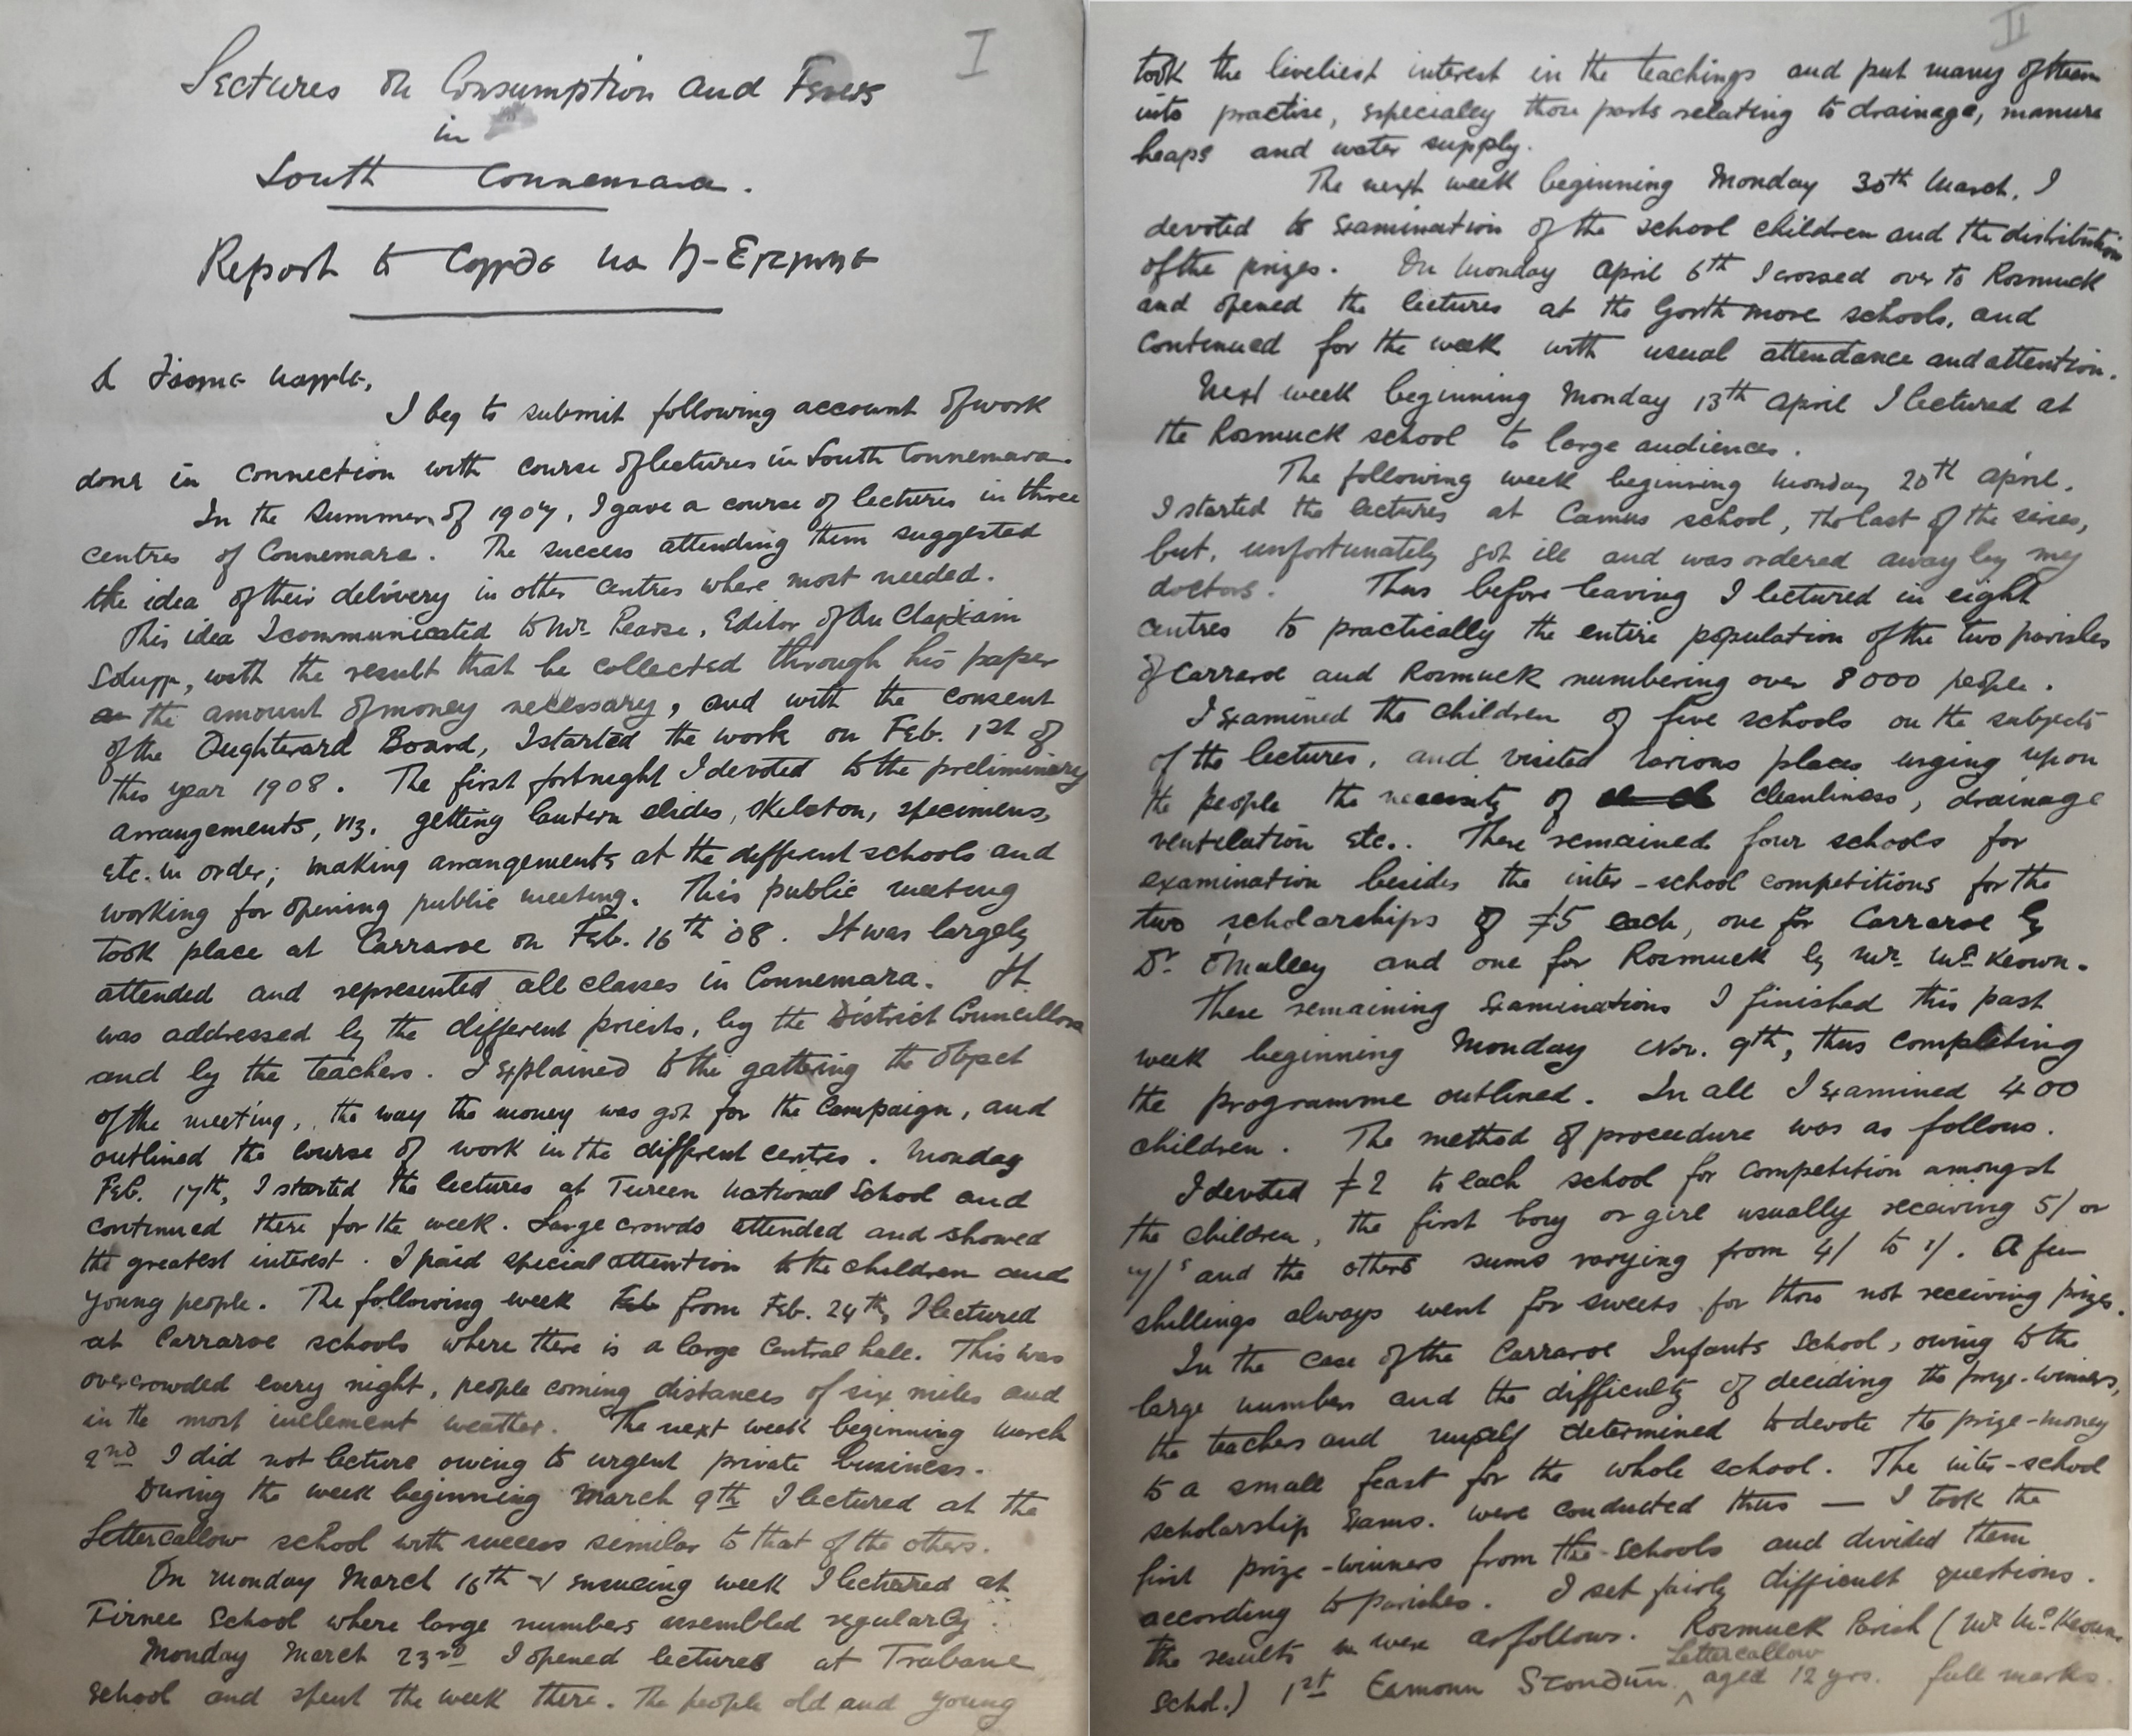 I
Lectures on Consumption and Fevers
in
South Connemara.
Report to Coirde na h-Eireann
A Daoine Uaisle,
I beg to submit following account of work
done in connection with course of lectures in South Connemara.
In the Summer of 1907, I gave a course of lectures in three
centres of Connemara. The success attending them suggested
the idea of their delivery in other centres where most needed.
This idea I communicated to Mr. Pearse, Editor of An Claidheamh
Soluis, with the result that he collected through his paper
the amount of money necessary, and with the consent
of the Oughterard Board, I started the work on Feb. 1st of
this year 1908. The first fortnight I devoted to the preliminary
arrangements, viz. getting lantern slides, skeleton, specimens,
etc. in order; making arrangements at the different schools and
working for opening public meeting. This public meeting
took place at Carraroe on Feb. 16th '08. It was largely
attended and represented all classes in Connemara. It
was addressed by the different priests, by the District Councillors
and by the teachers. I explained to the gathering the object
of the meeting, the way the money was got for the Campaign, and
outlined the course of work in the different centres. Monday
Feb. 17th, I started the lectures at Tureen National School and
continued there for the week. Large crowds attended and showed
the greatest interest. I paid special attention to the children and
young people. The following week Feb from Feb. 24th, I lectured
at Carraroe schools where there is a large Central hall. This was
overcrowded every night, people coming distances of six miles and
in the most inclement weather. The next week beginning March
2nd I did not lecture owing to urgent private business.
During the week beginning March 9th I lectured at the
Lettercallow school with success similar to that of the others.
On Monday March 16th & ensueing week I lectured at
Tirnee School where large numbers assembled regularly.
Monday March 23rd I opened lectures at Trabane
school and spent the week there. The people old and young
II
took the liveliest interest in the teachings and put many of them
into practise, especialey those parts relating to drainage, manure
heaps and water supply.
The next week beginning Monday 30th March, I
devoted to examination of the school children and the distribution
of the prizes. On Monday April 6th I crossed over to Rosmuck
and opened the lectures at the Gorthmore schools, and
continued for the week with usual attendance and attention.
Next week beginning Monday 13th April I lectured at
the Rosmuck school to large audiences.
The following week beginning Monday 20th April,
I started the lectures at Camus school, the last of the series,
but, unfortunately got ill and was ordered away by my
doctors. Thus before leaving I lectured in eight
centres to practically the entire population of the two parishes
of Carraroe and Rosmuck numbering over 8000 people.
I examined the children of five schools on the subjects
of the lectures, and visited various places urging upon
the people the necessity of cleanliness, drainage
ventilation etc.. There remained four schools for
examination besides the inter-school competitions for the
two scholarships of £5 each, one for Carraroe by
Dr. O'Malley and one for Rosmuck by Mr. McKeown.
These remaining examinations I finished this past
week beginning Monday Nov. 9th, thus completing
the programme outlined. In all I examined 400
children. The method of procedure was as follows.
I devoted £2 to each school for competition amongst
the children, the first boy or girl usually receiving 5/ or
and the others sums varying from 4/ to 1/. A few
shillings always went for sweets for those not receiving prizes.
In the case of the Carraroe Infants School, owing to the
large numbers and the difficulty of deciding the prize-winners,
the teachers and myself determined to devote the prize-money
to a small feast for the whole school. The inter-school
scholarship Exams. were conducted thus — I took the
first prize-winners from the schools and divided them
according to parishes. I set fairly difficult questions.
the results were as follows. Rosmuck Parish (Mr McKeown
Schol.) 1st Eamonn Stondun, Lettercallow aged 12 yrs. full marks.